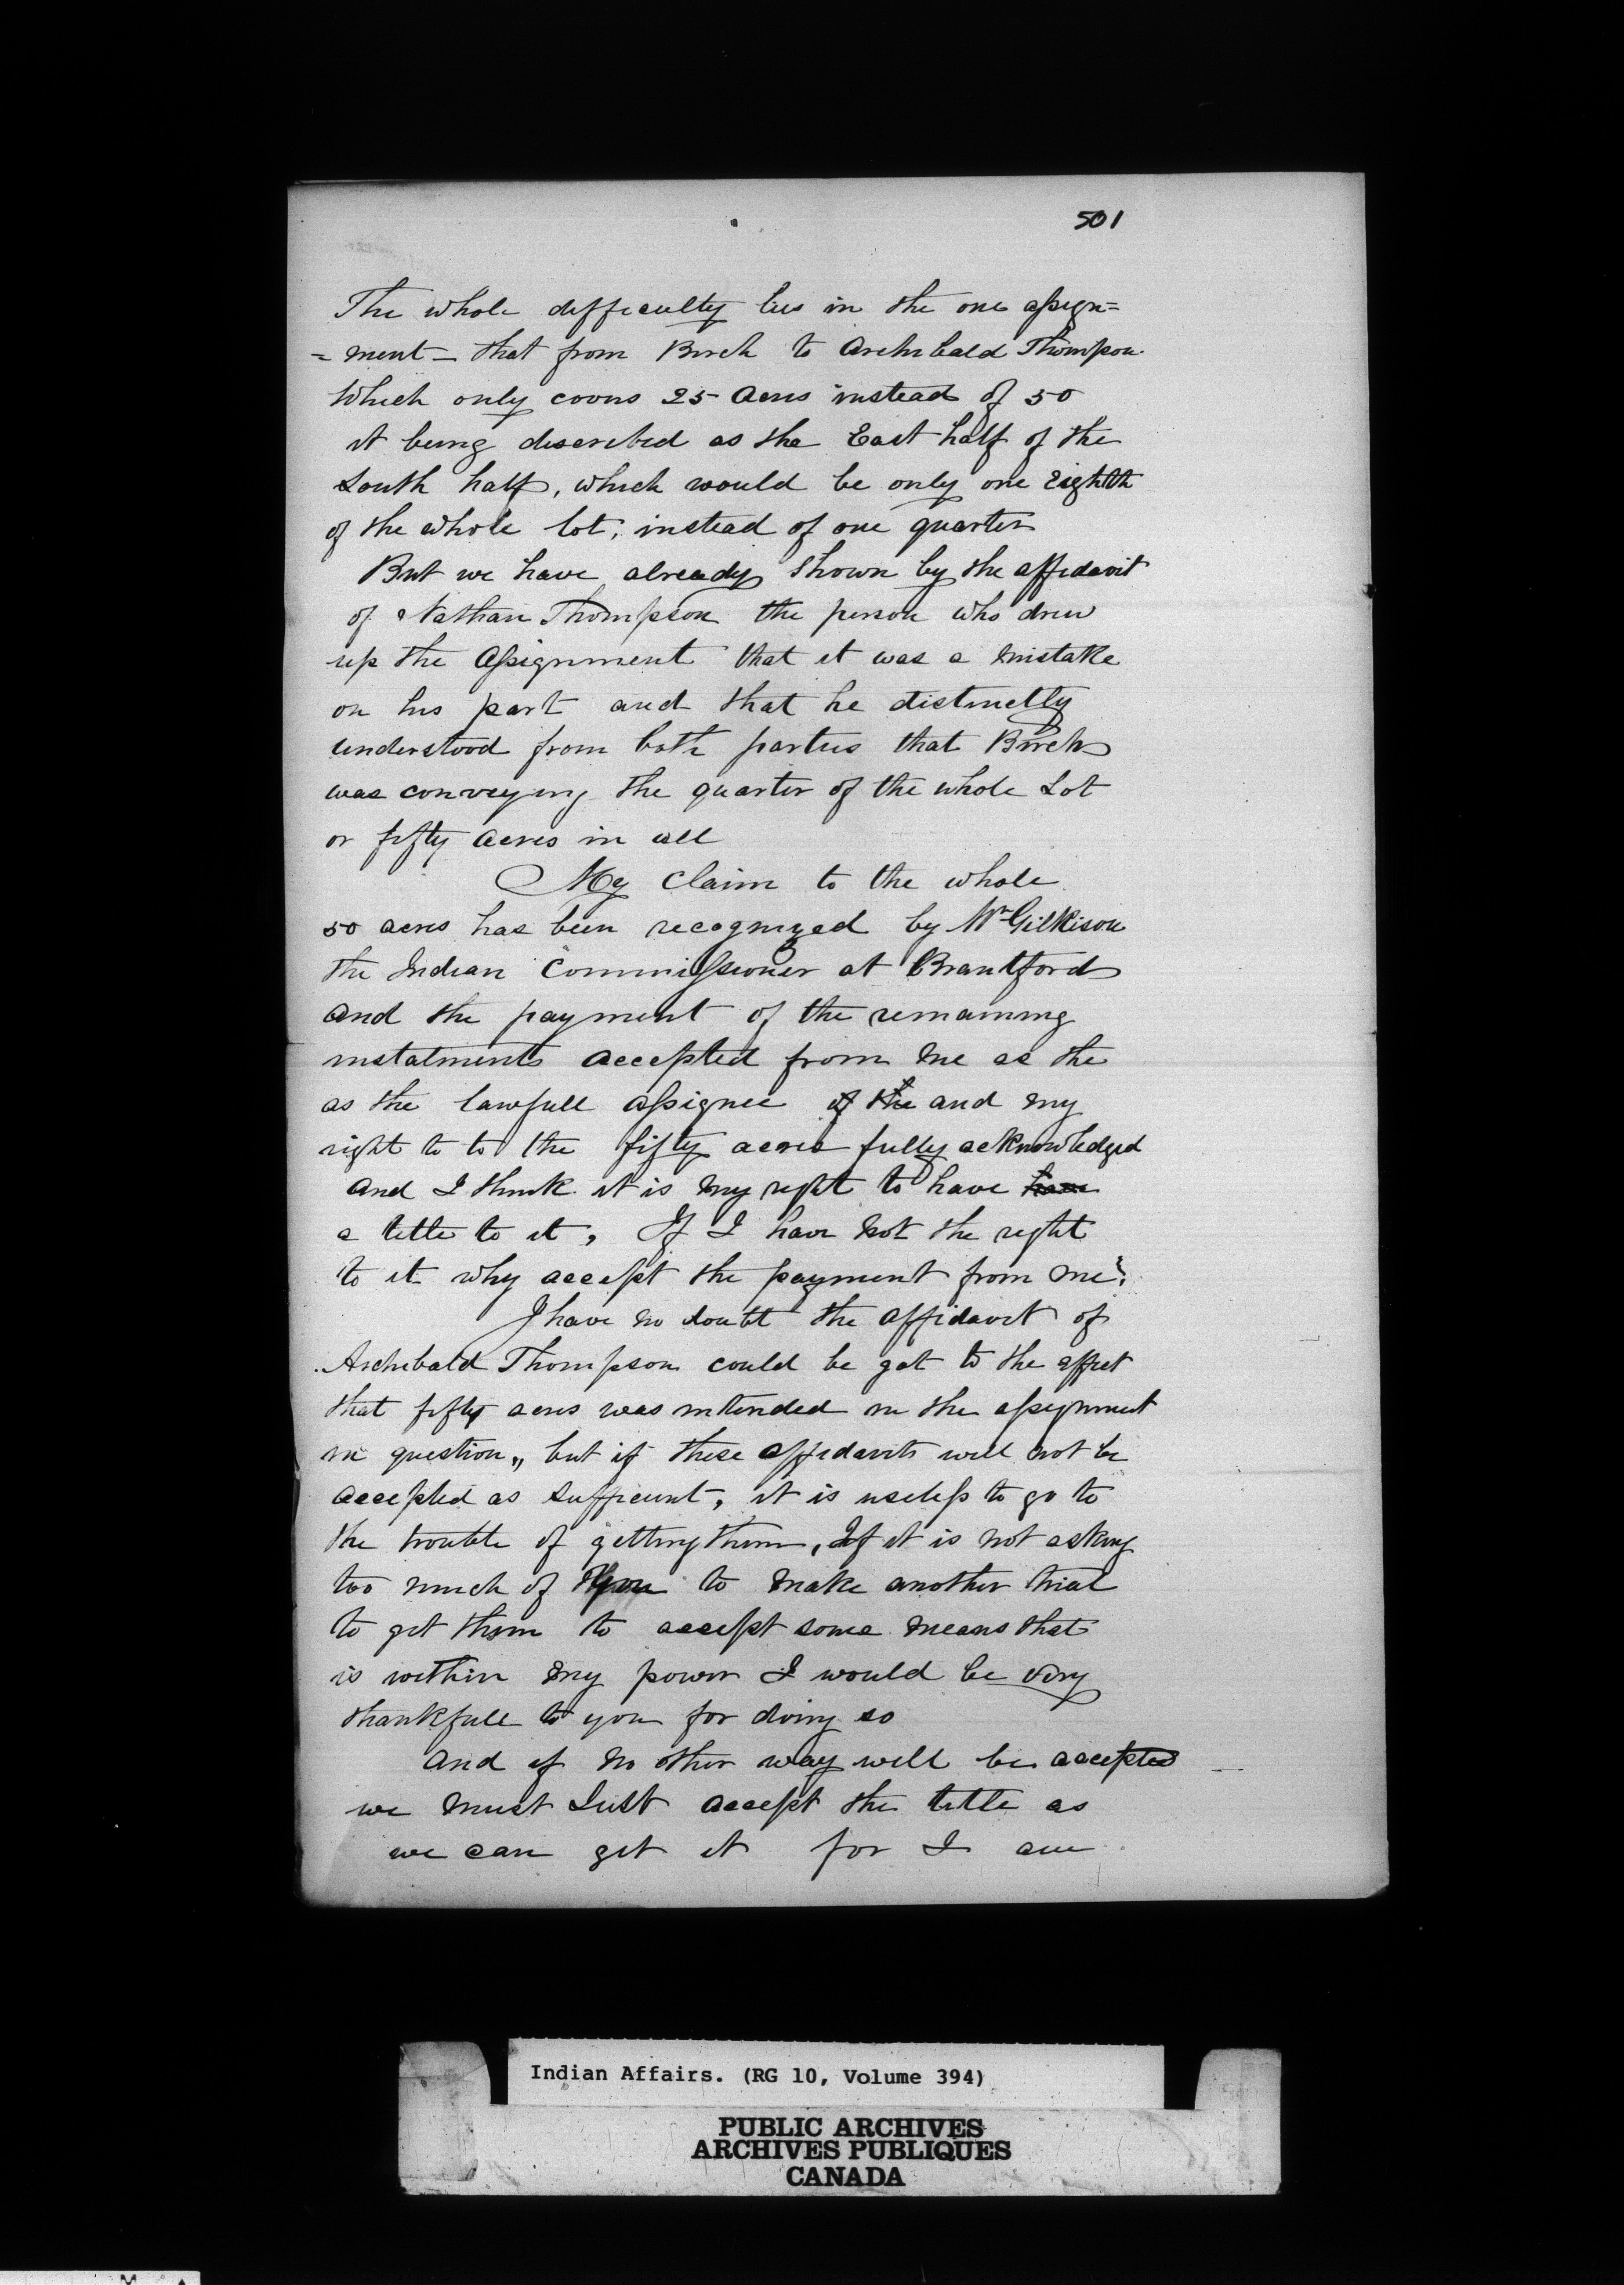 501
The whole difficulty lies in the one assign=
=ment - that from Birch to Archibald Thompson
which only covers 25 acres instead of 50
it being described as the East half of the
South half, which would be only one Eighth
of the whole lot, instead of one quarter
But we have already shown by the affidavit
of Nathan Thompson the person who drew
up the Assignment that it was a mistake
on his part and that he distinctly
understood from both parties that Birch
was conveying the quarter of the whole Lot
or fifty acres in all
My claim to the whole
50 acres has been recognized by Mr Gilkison
the Indian Commissioner at Brantford
and the payment of the remaining
instalments accepted from me as the
as the lawfull assignee of the and my
right to to the fifty acres fully acknowledged
and I think it is my right to have have
a title to it, If I have not the right
to it why accept the payment from me?
I have no doubt the affidavit of
Archibald Thompson could be got to the effect
that fifty acres was intended in the assignment
in question,, but if these affidavits will not be
accepted as sufficient, it is useless to go to
the trouble of getting them, If it is not asking
too much of you to make another trial
to get them to accept some means that
is within my power I would be very
thankfull to you for doing so
And if no other way will be accepted
we must Just accept the title as
we can get it for I am
Indian Affairs. (RG 10, Volume 394)
PUBLIC ARCHIVES
ARCHIVES PUBLIQUES
CANADA